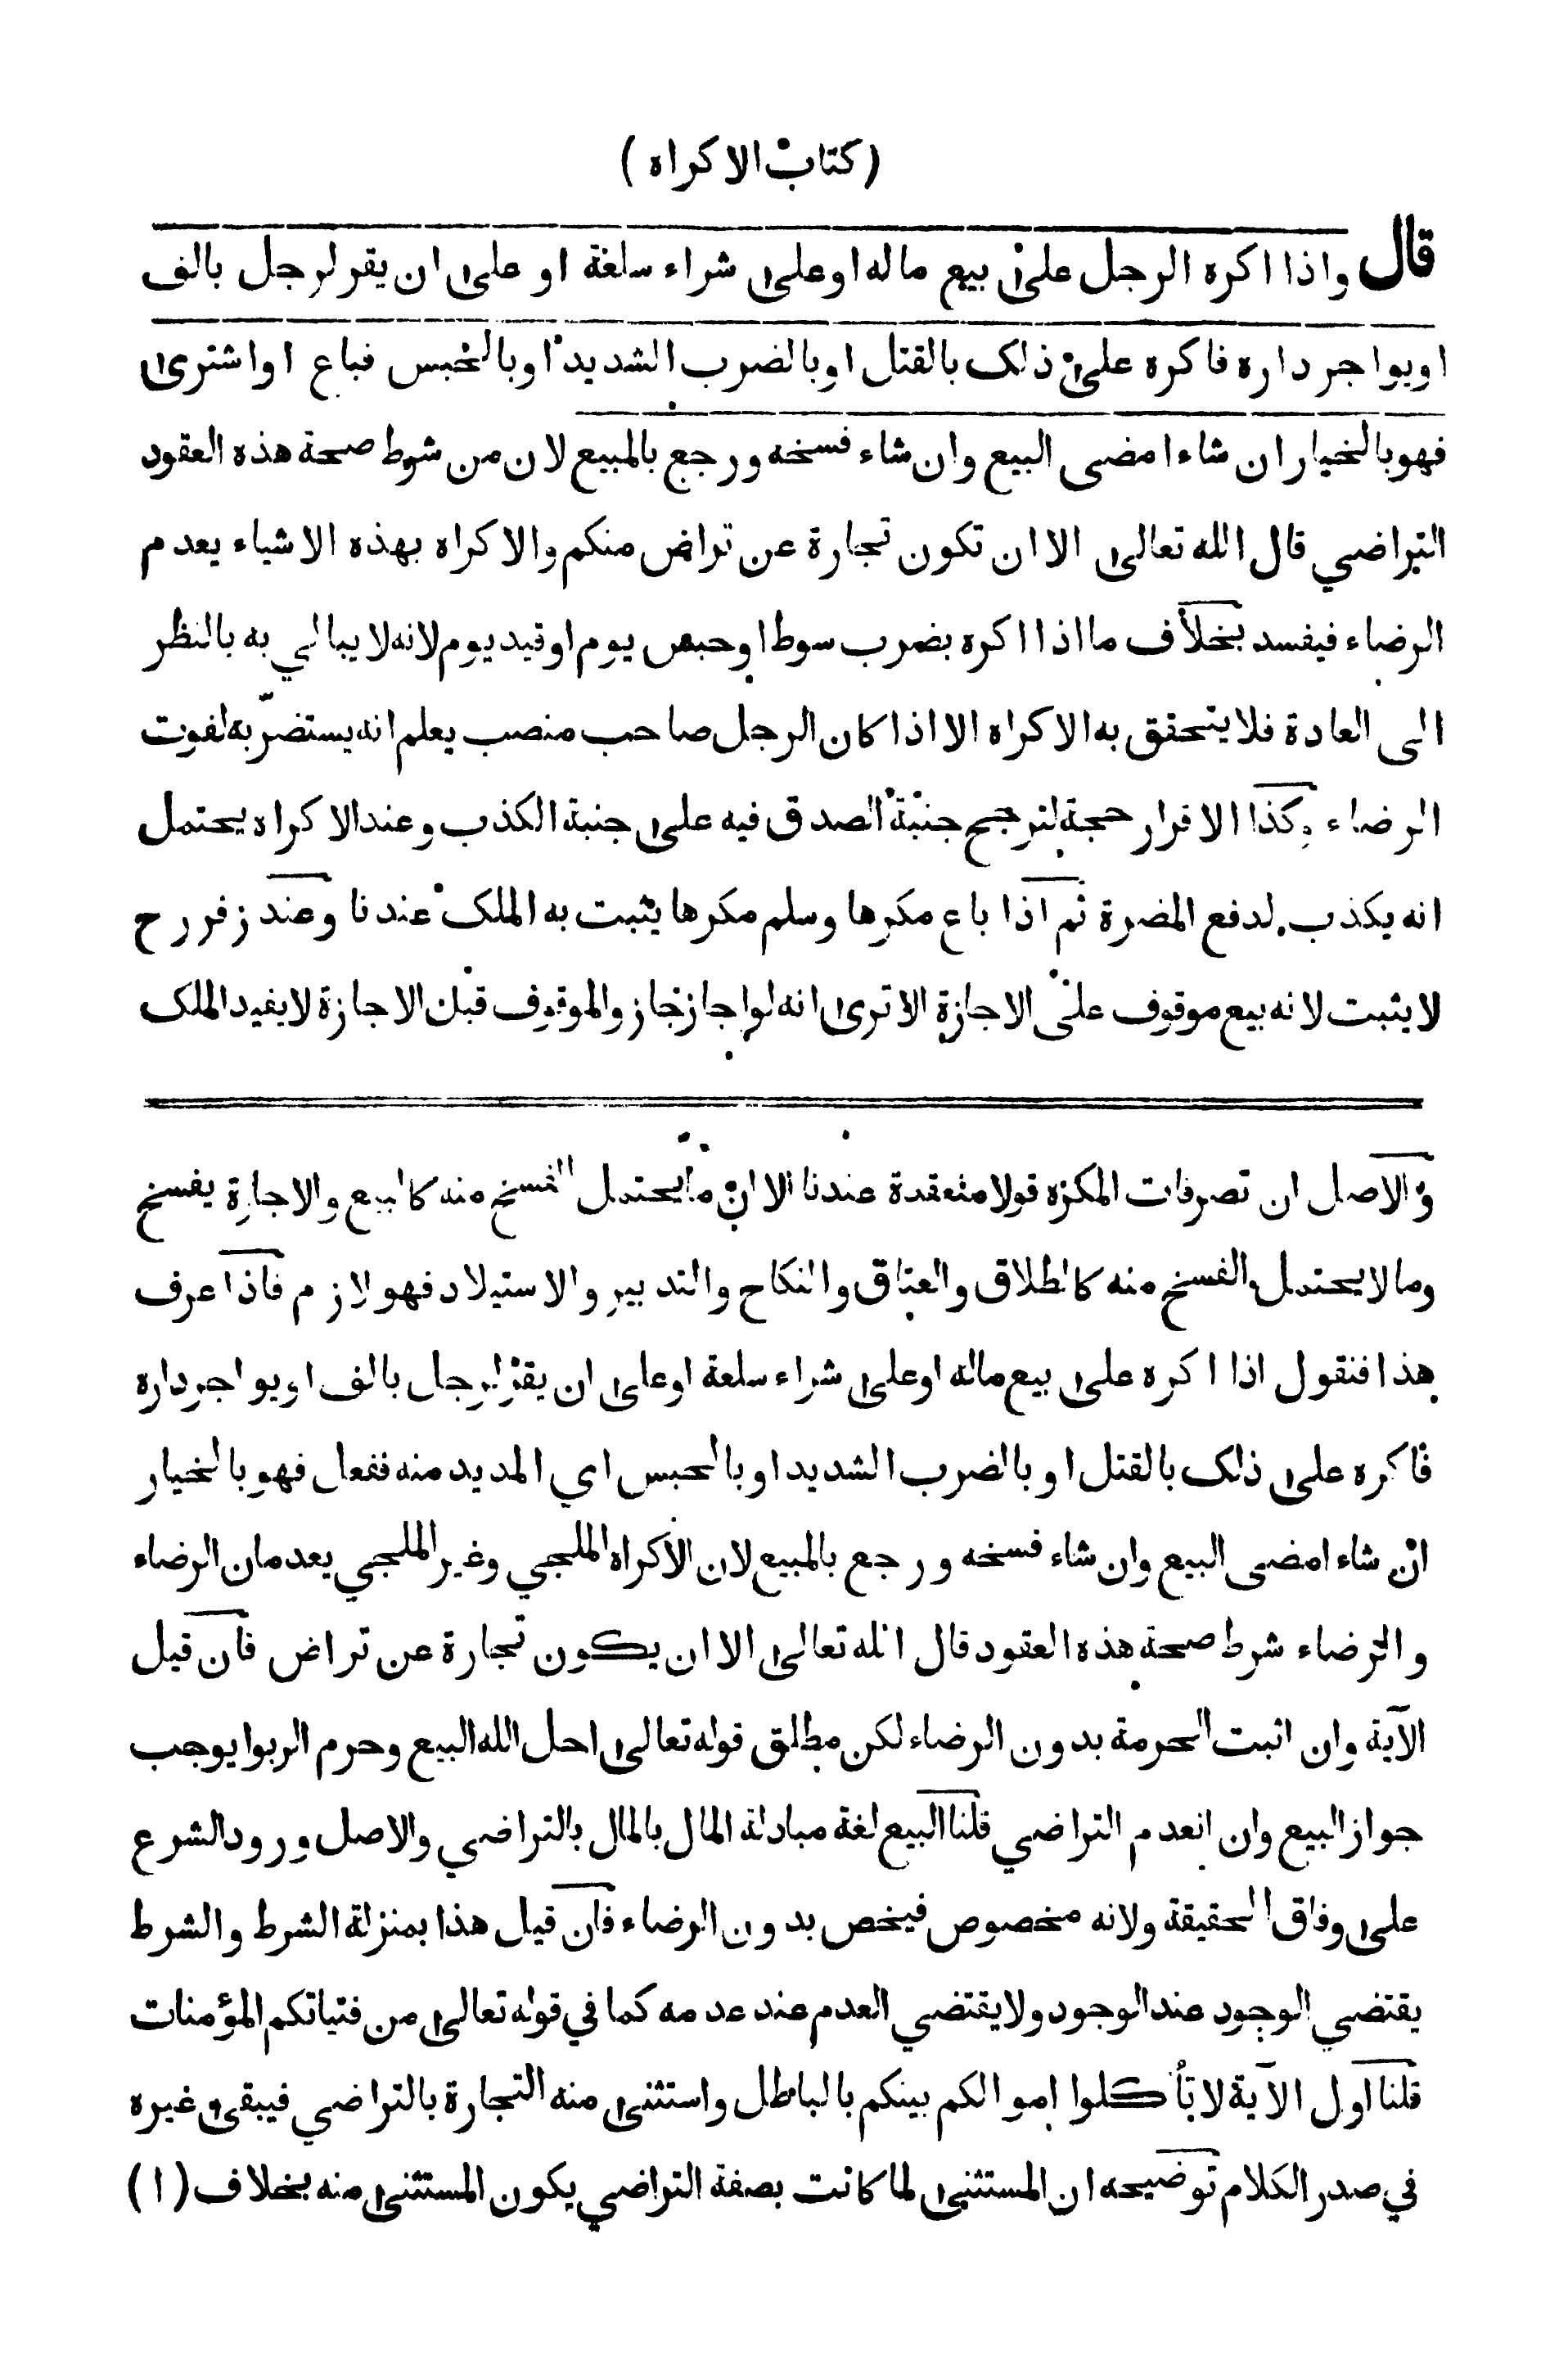 ( كتاب الاكراه )
قال واذا اكره الرجل على بيع ماله او على شراء سلعة او على ان يقر لرجل بالف
او يواجر داره فاكره على ذلك بالقتل او بالضرب الشديد او بالحبس فباع او اشترى
فهو بالخيار ان شاء امضى البيع وان شاء فسخه ورجع بالمبيع لان من شرط صحة هذه العقود
التراضي قال الله تعالى الا ان تكون تجارة عن تراض منكم والاكراه بهذه الاشياء يعدم
الرضاء فيفسد بخلاف ما اذا اكره بضرب سوط او حبس يوم او قيد يوم لانه لا يبالي به بالنظر
الى العادة فلا يتحقق به الاكراه الا اذا كان الرجل صاحب منصب يعلم انه يستضر به لفوت
الرضاء وكذا الاقرار حجة لترجح جنبة الصدق فيه على جنبة الكذب وعند الاكراه يحتمل
انه يكذب لدفع المضرة ثم اذا باع مكرها وسلم مكرها يثبت به الملك عندنا وعند زفر رح
لا يثبت لانه بيع موقوف على الاجازة الا ترى انه لو اجاز جاز والموقوف قبل الاجازة لا يفيد الملك
والاصل ان تصرفات المكره قولا منعقدة عندنا الا ان ما يحتمل الفسخ منه كالبيع والاجارة يفسخ
وما لا يحتمل الفسخ منه كالطلاق والعتاق والنكاح والتدبير والاستيلاد فهو لازم فاذا عرف
هذا فنقول اذا اكره على بيع ماله او على شراء سلعة او على ان يقر لرجل بالف او يواجر داره
فاكره على ذلك بالقتل او بالضرب الشديد او بالحبس اي المديد منه ففعل فهو بالخيار
ان شاء امضى البيع وان شاء فسخه ورجع بالمبيع لان الاكراه الملجي وغير الملجي يعدمان الرضاء
والرضاء شرط صحة هذه العقود قال الله تعالى الا ان يكون تجارة عن تراض فان قيل
الآية وان اثبت الحرمة بدون الرضاء لكن مطلق قوله تعالى احل الله البيع وحرم الربوا يوجب
جواز البيع وان انعدم التراضي قلنا البيع لغة مبادلة المال بالمال بالتراضي والاصل ورود الشرع
على وفاق الحقيقة ولانه مخصوص فيخص بدون الرضاء فان قيل هذا بمنزلة الشرط والشرط
يقتضي الوجود عند الوجود ولا يقتضي العدم عند عدمه كما في قوله تعالى من فتياتكم المؤمنات
قلنا اول الآية لا تأكلوا اموالكم بينكم بالباطل واستثنى منه التجارة بالتراضي فيبقى غيره
في صدر الكلام توضيحه ان المستثنى لما كانت بصفة التراضي يكون المستثنى منه بخلاف ( ا )